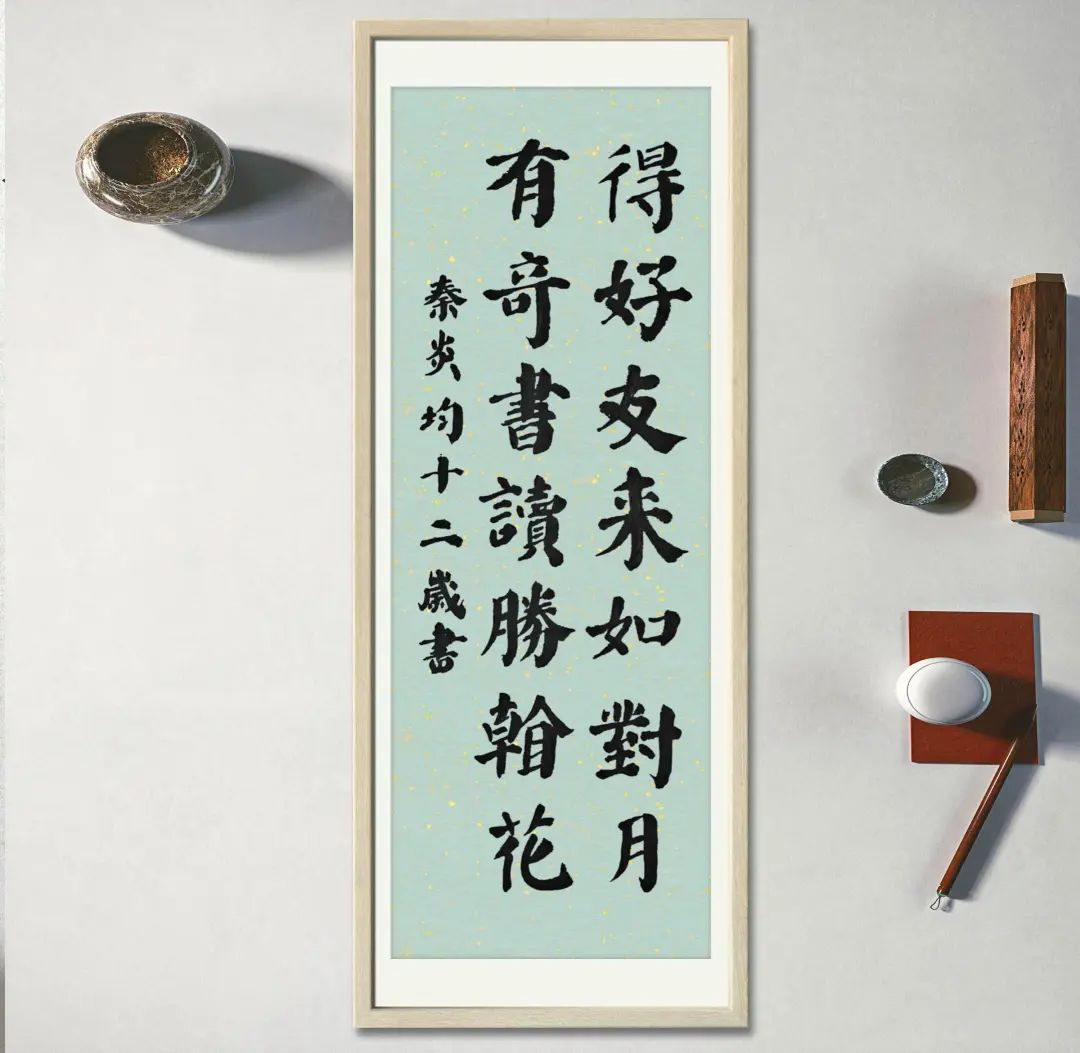 得好友来如對月
有奇書讀勝看花
秦炎均十二歲書